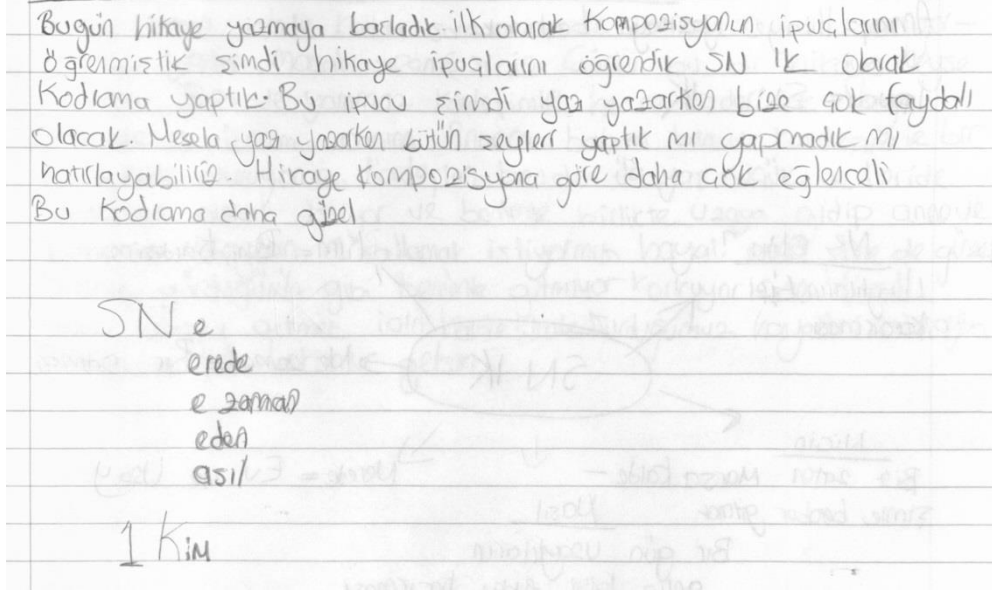 Bugün hikaye yazmaya başladık. ilk olarak Kompozisyonun ipuçlarını
öğrenmiştik şimdi hikaye ipuçlarını öğrendik SN 1K olarak
Kodlama yaptık. Bu ipucu şimdi yazı yazarken bize çok faydalı
olacak. Mesela yazı yazarken bütün şeyleri yaptık mı yapmadık mı
hatırlayabiliriz Hikaye Kompozisyona göre daha çok eğlenceli
Bu Kodlama daha güzel
5N e
erede
e zaman
eden
asıl
1 Kim